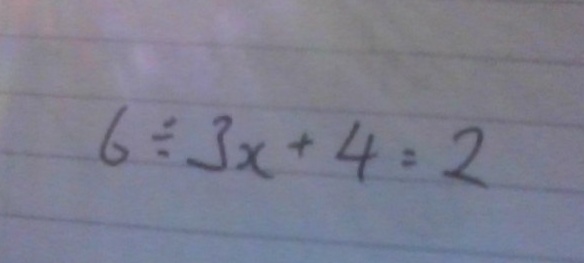 6 ÷ 3x + 4 = 2